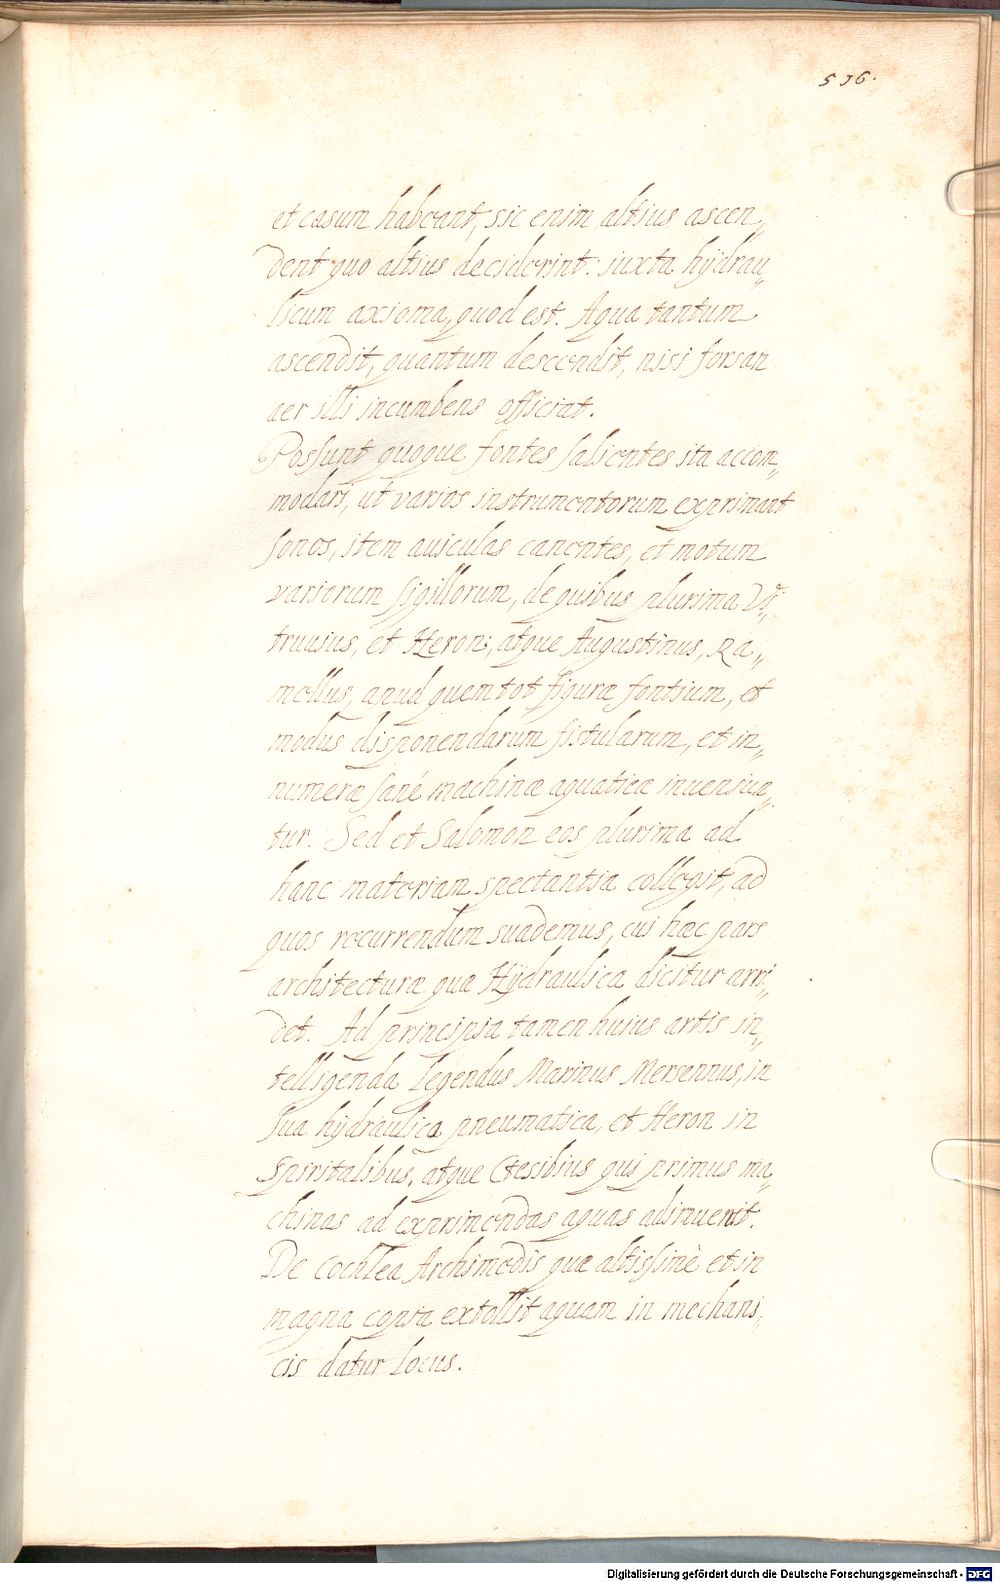 536.
et casum habeant, sic enim altius ascen„
dent quo altius deciderint: iuxta hÿdrau„
licum axioma, quod est. Aqua tantum
ascendit, quantum descendit, nisi forsan
aer illi incumbens officiat.
Possunt quoque fontes salientes ita accom„
modari, ut varios instrumentorum exprimant
sonos, item auiculas canentes, et motum
variorum sigillorum, de quibus plurima Vi„
truuius, et Heron:, atque Augustinus, Ra„
mellus, apud quem tot figuræ fontium, et
modus disponendarum fistularum, et in„
numeræ sané machinæ aquaticæ inueniun„
tur. Sed et Salomon eos plurima ad
hanc materiam spectantia collegit, ad
quos recurrendum suademus, cui hæc pars
architecturæ quæ Hÿdraulica dicitur arri„
det. Ad principia tamen huius artis in„
telligenda legendus Marinus Mersennus, in
sua hÿdraulica pneumatica, et Heron in
Spiritalibus, atque Ctesibius qui primus ma„
chinas ad exprimendas aquas adinuenit.
De Cochlea Archimedis quæ altissimè et in
magna copia extollit aquam in mechani„
cis datur locus.
Digitalisierung gefördert durch die Deutsche Forschungsgemeinschaft - DFG